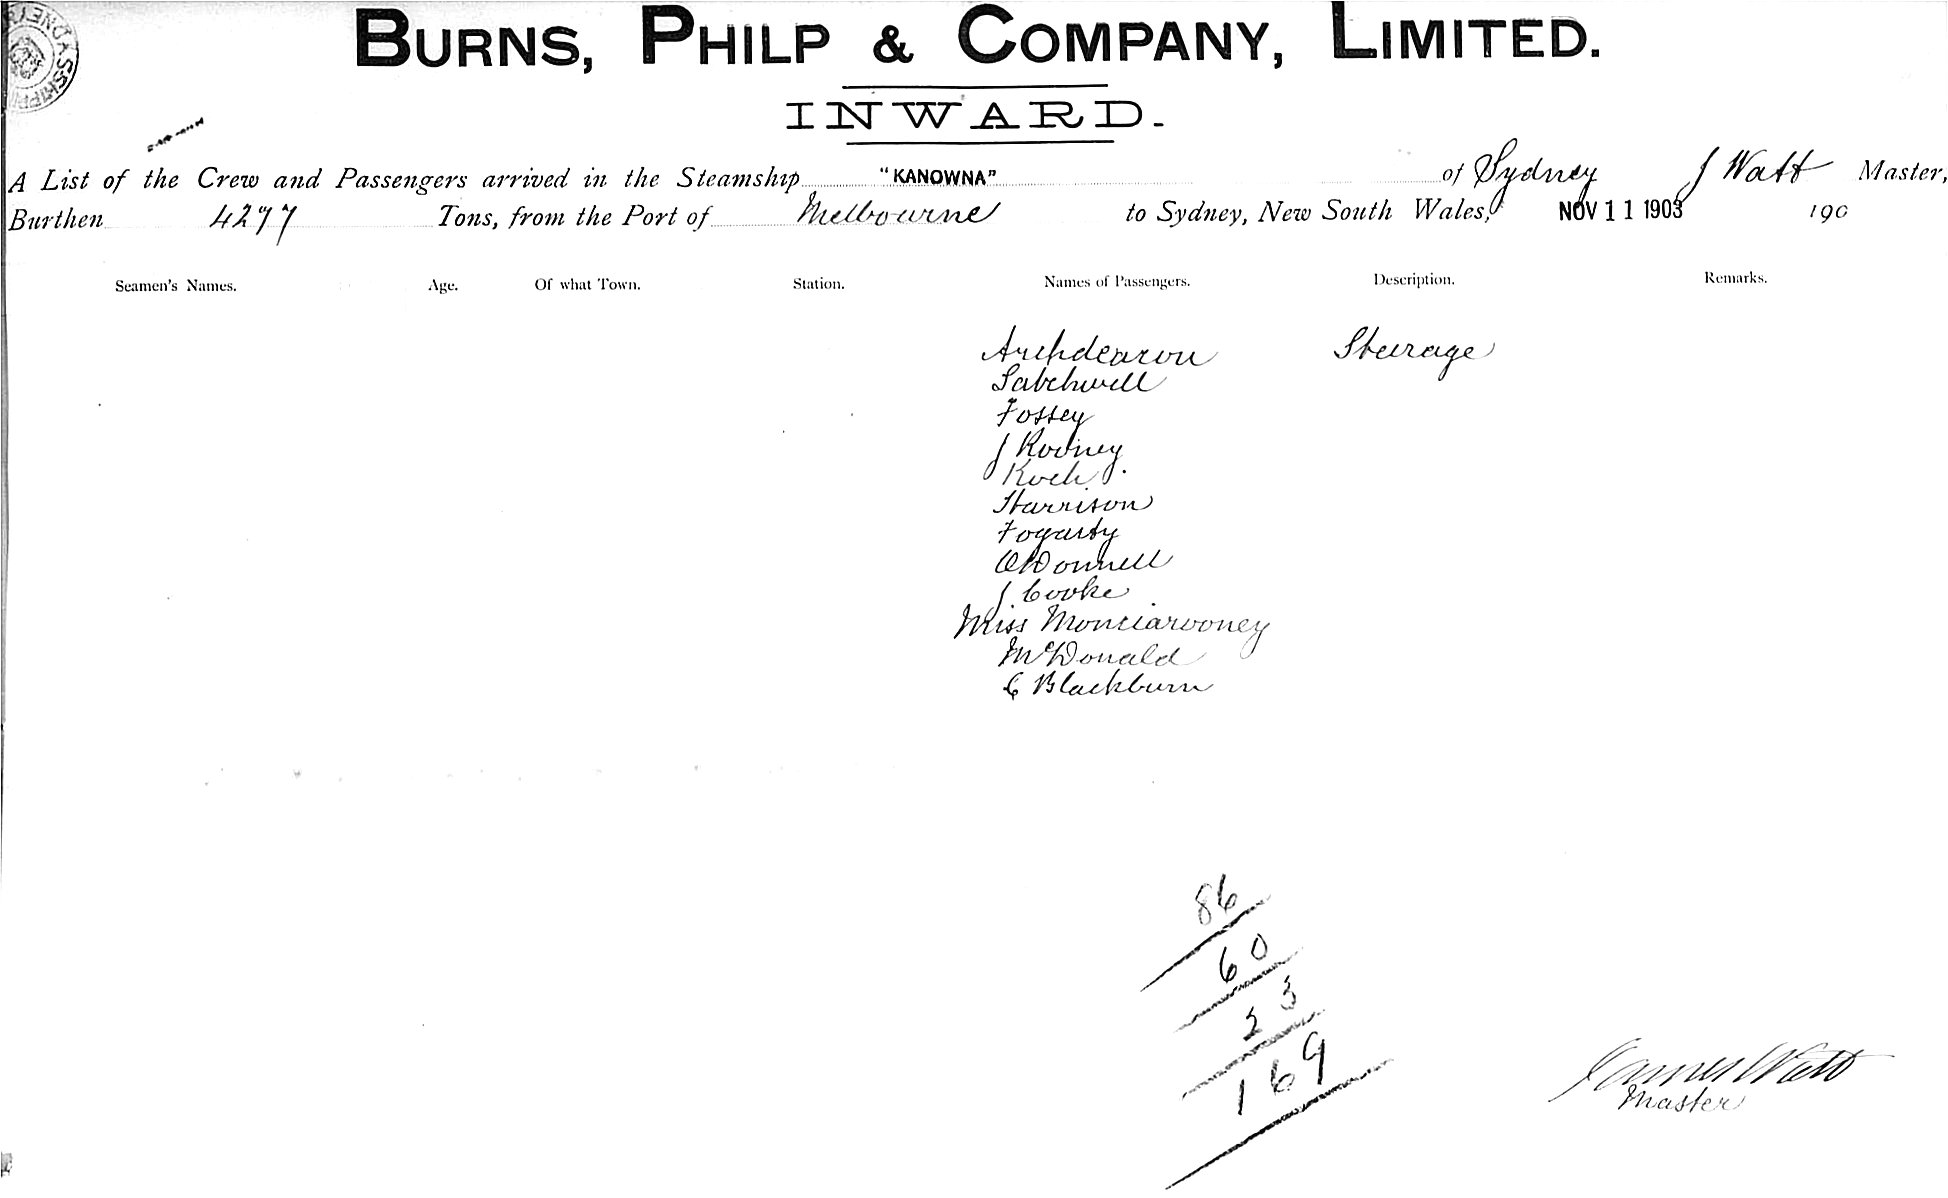 BURNS, PHILP & COMPANY, LIMITED.
INWARD.
A List of the Crew and Passengers arrived in the Steamship "KANOWNA" of Sydney J Watt Master,
Burthen 4277 Tons, from the Port of Melbourne to Sydney, New South Wales, NOV 11 1903 190
Seamen's Names. Age. Of what Town. Station. Names of Passengers. Description. Remarks.
Archdeacon Steerage
Satchwell
Fossey
J Rooney
Koch
Harrison
Fogarty
O'Donnell
J Cooke
Miss
McDonald
C Blackburn
86
60
23
169
James Watt
Master